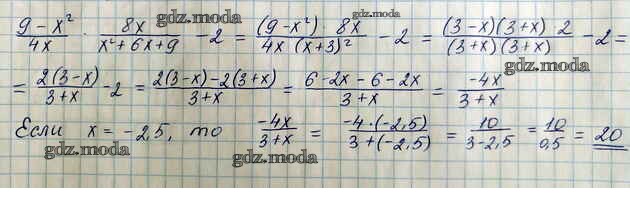 (9 - x²)/(4x) · (8x)/(x² + 6x + 9) - 2 = ((9 - x²) · 8x)/(4x (x+3)²) - 2 = ((3-x)(3+x) 2)/((3+x)(3+x)) - 2 =
= (2(3-x))/(3+x) - 2 = (2(3-x) - 2(3+x))/(3+x) = (6 - 2x - 6 - 2x)/(3+x) = (-4x)/(3+x)
Если x = -2,5, то (-4x)/(3+x) = (-4·(-2,5))/(3+(-2,5)) = 10/(3-2,5) = 10/0,5 = 20
gdz.moda
gdz.moda
gdz.moda
gdz.moda
gdz.moda
gdz.moda